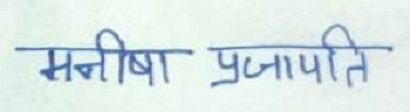 मनीषा प्रजापति